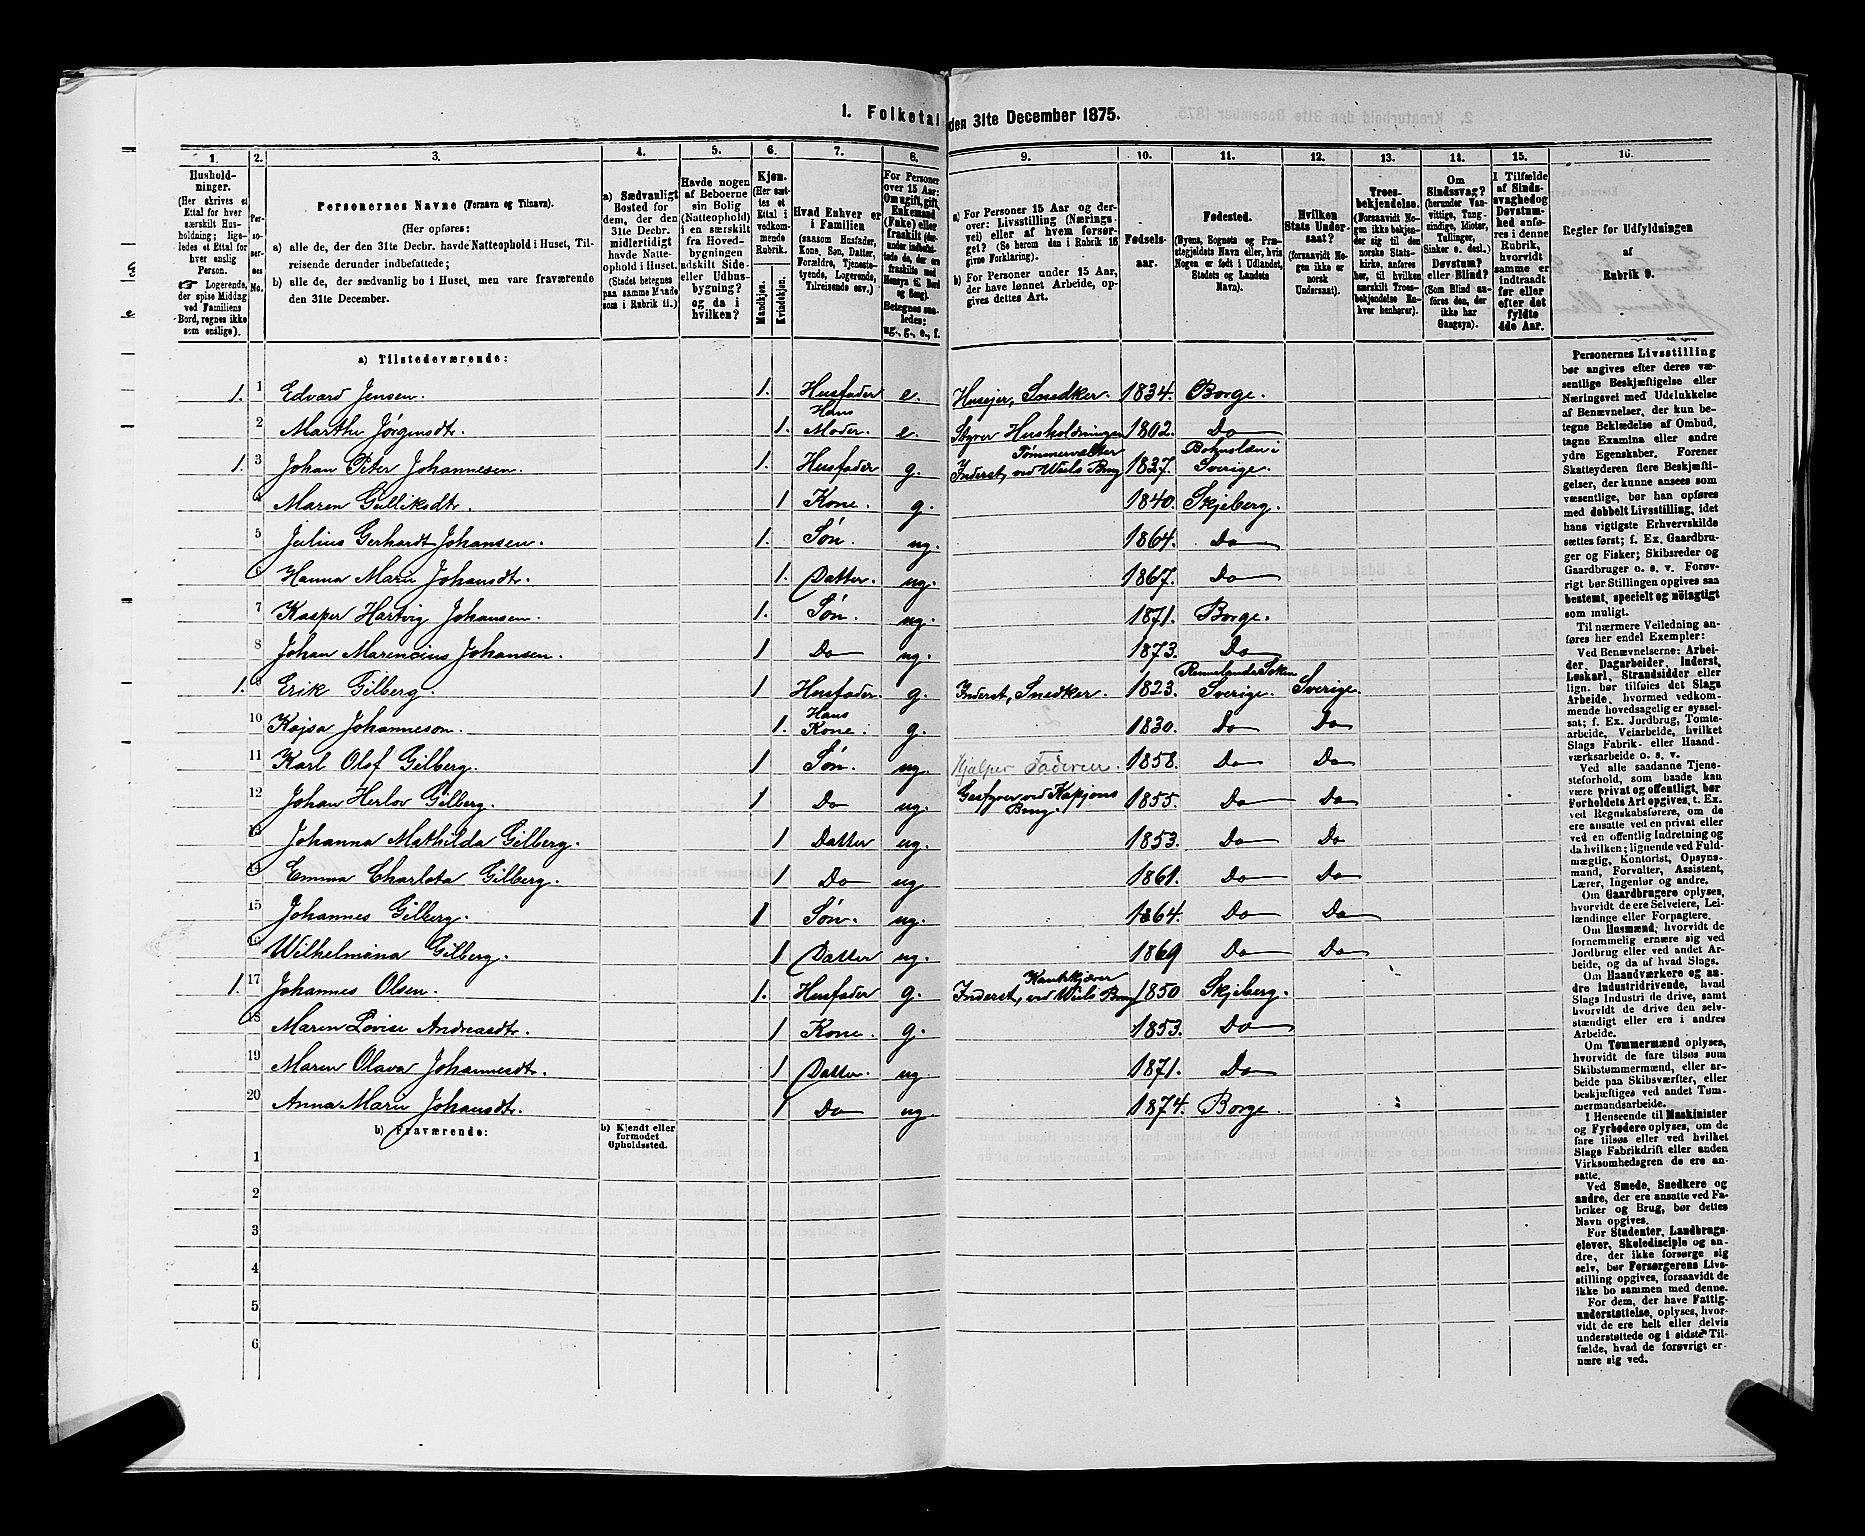 1. Folketal den 31te December 1875.
1. 2. 3. 4. 5. 6. 7. 8. 9. 10. 11. 12. 13. 14. 15. 16.
Hushold-
ninger.
(Her skrives et
Ettal for hver
særskilt Hus-
holdning; lige-
ledes et Ettal for
hver enslig
Person.
☞ Logerende,
der spise Middag
ved Familiens
Bord, regnes ikke
som enslige).
Per-
so-
ner-
nes
No.
Personernes Navne (Fornavn og Tilnavn).
(Her opføres:
a) alle de, der den 31te Decbr. havde Natteophold i Huset, Til-
reisende derunder indbefattede;
b) alle de, der sædvanlig bo i Huset, men vare fraværende
den 31te December.
a) Sædvanligt
Bosted for
dem, der den
31te Decbr.
midlertidigt
havde Natte-
ophold i Huset.
(Stedet betegnes
paa samme Maade
som i Rubrik 11.)
Havde nogen
af Beboerne
sin Bolig
(Natteophold)
i en særskilt
fra Hoved-
bygningen
adskilt Side-
eller Udhus-
bygning?
og da i
hvilken?
Kjøn.
(Her sæt-
tes et
Ettal i
vedkom-
mende
Rubrik.
Mandkjøn.
Kvindekjøn.
Hvad Enhver er
i Familien
(saasom Husfader,
Kone, Søn, Datter,
Forældre, Tjeneste-
tyende, Logerende,
Tilreisende osv.)
For Personer
over 15 Aar:
Om ugift, gift,
Enkemand
(Enke) eller
fraskilt (der-
under indbefat-
tede de, der ere
fraskilte med
Hensyn til Bord
og Seng).
Betegnes saa-
ledes:
ug., g., e., f.
a) For Personer 15 Aar og der-
over: Livsstilling (Nærings-
vei) eller af hvem forsør-
get? (Se herom den i Rubrik 16
givne Forklaring).
b) For Personer under 15 Aar,
der have lønnet Arbeide, op-
gives dettes Art.
Fødsels-
aar.
Fødested.
(Byens, Sognets og Præ-
stegjeldets Navn eller, hvis
Nogen er født i Udlandet,
Stedets og Landets
Navn).
Hvilken
Stats Under-
saat?
(forsaavidt No-
gen ikke er
norsk
Undersaat).
Troes-
bekjendelse.
(Forsaavidt No-
gen ikke bekjen-
der sig til den
norske Stats-
kirke, anføres
her, til hvilken
særskilt Troes-
bekjendelse En-
hver henhører).
Om
Sindssvag?
(herunder Van-
vittige, Tung-
sindige, Idioter,
Tullinger,
Sinker o. desl.)
Døvstum?
eller Blind?
(Som Blind an-
føres den, der
ikke har
Gangsyn).
I Tilfælde
af Sinds-
svaghed og
Døvstum-
hed anfø-
res i denne
Rubrik,
hvorvidt
samme er
indtraadt
før eller
efter det
fyldte
4de Aar.
Regler for Udfyldningen
af
Rubrik 9.
a) Tilstedeværende:
1. 1 Edvard Jensen. 1. Husfader e. Husejer, Snedker. 1834. Borge.
2 Marthe Jørgensdtr. 1. Hans Moder. e. Styrer Husholdningen 1802. Do
1. 3 Johan Peter Johannesen. 1. Husfader g. Inderst, Tømmervalter ved Wiels Brug 1837. Bohuslen i Sverige.
4 Maren Gulliksdtr. 1 Kone. g. 1840. Skjeberg.
5 Julius Gerhardt Johansen. 1. Søn. ug. 1864. Do
6 Hanna Marie Johansdtr. 1. Datter. ug. 1867. Do
7 Kasper Hartvig Johansen. 1. Søn. ug. 1871. Borge.
8 Johan Marencius Johansen. 1 Do ug. 1873. Do
1. 9 Erik Gilberg. 1 Husfader. g. Inderst, Snedker. 1823. Sverige. Sverige.
10 Kajsa Johanneson. 1. Hans Kone. g. 1830. Do Do
11 Karl Olof Gilberg. 1 Søn. ug. Hjælper Faderen. 1858. Do Do
12 Johan Herlov Gilberg. 1 Do ug. Brug. 1855. Do Do
13 Johanna Mathilda Gilberg. 1 Datter ug. 1853. Do Do
14 Emma Charlota Gilberg. 1 Do ug 1861. Do Do
15 Johannes Gilberg. 1 Søn. ug. 1864. Do Do
16 Wilhelmina Gilberg. 1 Datter ug. 1869 Do Do
1. 17 Johannes Olsen. 1. Husfader g. Inderst, Kantskjærer ved Wiels Brug 1850 Skjeberg.
18 Maren Lovise Andreasdtr. 1 Kone. g. 1853. Do
19 Maren Olava Johannesdtr. 1 Datter. ug 1871. Do
20 Anna Marie Johansdtr. 1 Do ug. 1874. Borge.
b) Fraværende:
b) Kjendt eller
formodet
Opholdssted.
1
2
3
4
5
6
Personernes Livsstilling
bør angives efter deres væ-
sentlige Beskjæftigelse eller
Næringsvei med Udelukkelse
af Benævnelser, der kun be-
tegne Beklædelse af Ombud,
tagne Examina eller andre
ydre Egenskaber. Forener
Skatteyderen flere Beskjæfti-
gelser, der kunne ansees som
væsentlige, bør han opføres
med dobbelt Livsstilling, idet
hans vigtigste Erhvervskilde
sættes først; f. Ex. Gaardbru-
ger og Fisker; Skibsreder og
Gaardbruger o. s. v. Forøv-
rigt bør Stillingen opgives saa
bestemt, specielt og nöiagtigt
som muligt.
Til nærmere Veiledning an-
føres her endel Exempler:
Ved Benævnelserne: Arbei-
der, Dagarbeider, Inderst,
Løskarl, Strandsidder eller
lign. bør tilføies det Slags
Arbeide, hvormed vedkom-
mende hovedsagelig er syssel-
sat; f. Ex. Jordbrug, Tomte-
arbeide, Veiarbeide, hvilket
Slags Fabrik- eller Haand-
værksarbeide o. s. v.
Ved alle saadanne Tjene-
steforhold, som baade kan
være privat og offentligt, bør
Forholdets Art opgives, t. Ex.
ved Regnskabsførere, om de
ere ansatte ved en privat eller
ved en offentlig Indretning og
da hvilken; lignende ved Fuld-
mægtig, Kontorist, Opsyns-
mand, Forvalter, Assistent,
Lærer, Ingeniør og andre.
Om Gaardbrugere oplyses,
hvorvidt de ere Selveiere, Lei-
lændinge eller Forpagtere.
Om Husmænd, hvorvidt de
fornemmelig ernære sig ved
Jordbrug eller ved andet Ar-
beide, og da af hvad Slags.
Om Haandværkere og an-
dre Industridrivende, hvad
Slags Industri de drive, samt
hvorvidt de drive den selv-
stændigt eller ere i andres
Arbeide.
Om Tømmermænd oplyses,
hvorvidt de fare tilsøs som
Skibstømmermænd, eller ar-
beide paa Skibsværfter, eller
beskjæftiges ved andet Tøm-
mermandsarbeide.
I Henseende til Maskinister
og Fyrbødere oplyses, om de
fare tilsøs eller ved hvilket
Slags Fabrikdrift eller anden
Virksomhedsgren de ere an-
satte.
Ved Smede, Snedkere og
andre, der ere ansatte ved Fa-
briker og Brug, bør dettes
Navn opgives.
For Studenter, Landbrugs-
elever, Skoledisciple og an-
dre, der ikke forsørge sig
selv, bør Forsørgerens Livs-
stilling opgives, forsaavidt de
ikke bo sammen med denne.
For dem, der have Fattig-
understøttelse, oplyses, hvor-
vidt de ere helt eller delvis
understøttede og i sidste Til-
fælde, hvad de forøvrigt er-
nære sig ved.